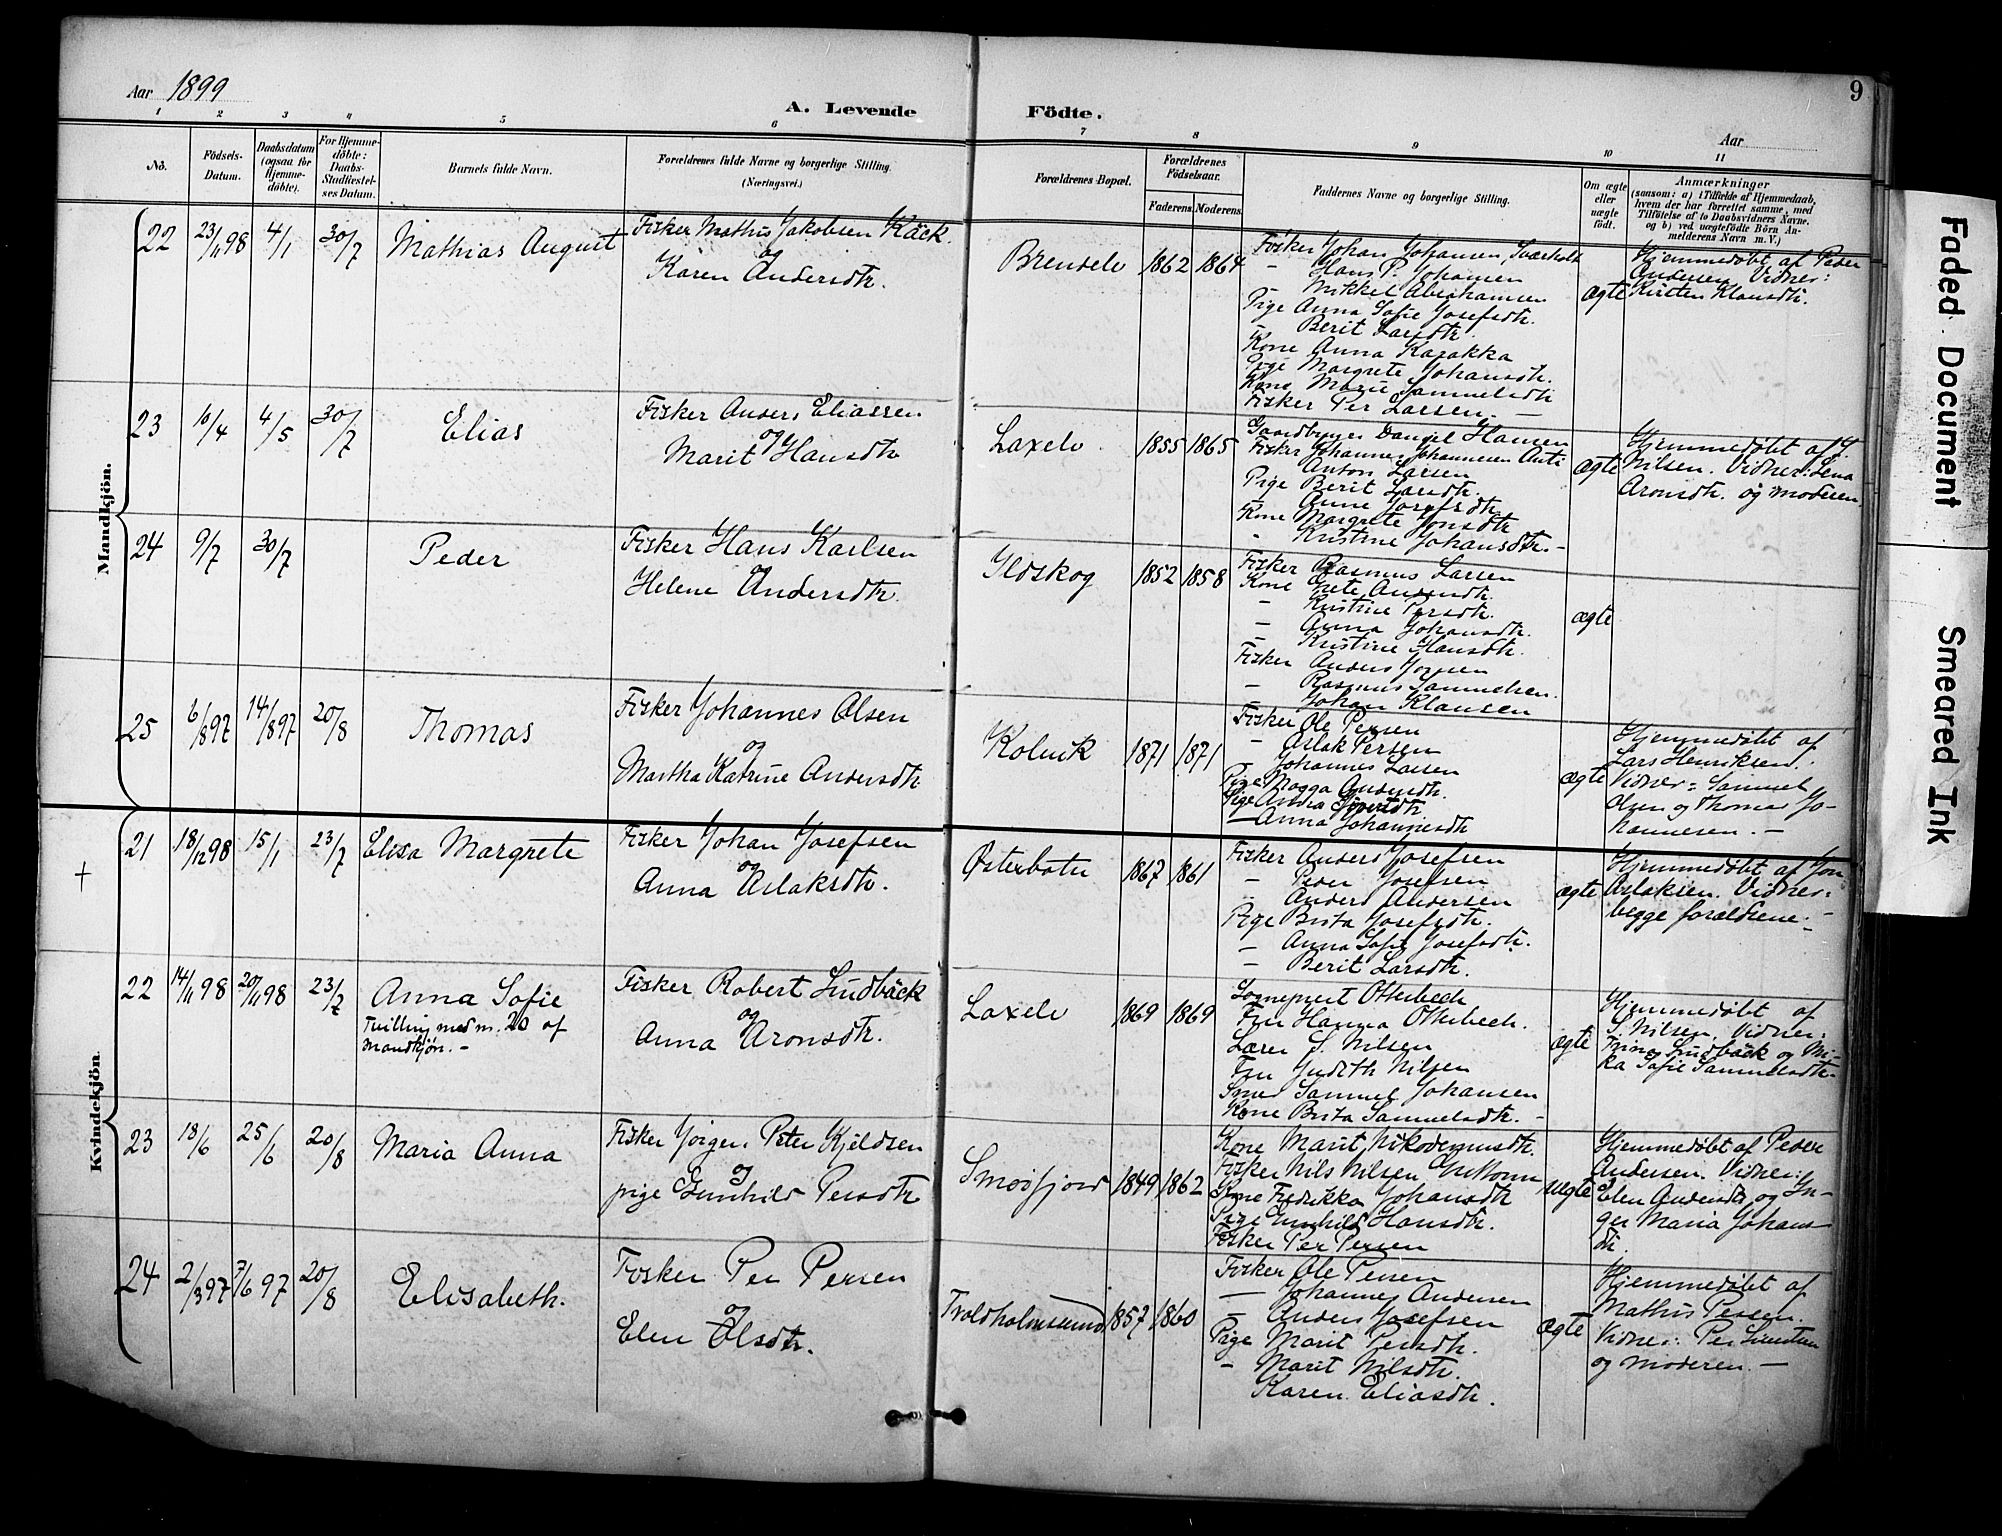 Aar 1899
A. Levende Födte.
9
Aar
1 2 3 4 5 6 7 8 9 10 11
No.
Födsels-Datum.
Daabsdatum (ogsaa for Hjemmedöbte).
For Hjemmedöbte: Daabs-Stadfæstelses Datum.
Barnets fulde Navn.
Forældrenes fulde Navne og borgerlige Stilling.
(Næringsvei.)
Forældrenes Bopæl.
Forældrenes Födselsaar.
Faderens. Moderens.
Faddernes Navne og borgerlige Stilling.
Om ægte eller uægte födt.
Anmærkninger
(saasom: a) i Tilfælde af Hjemmedaab, hvem der har forrettet samme, med Tilföielse af to Daabsvidners Navne, og b) ved uægtefödte Börn Anmelderens Navn m. V.)
Mandkjön.
22 23/11 98 4/1 30/7 Mathias August
Fisker Mathis Jakobsen Käck.
og
Karen Andersdtr.
Brenelv 1862 1864
Fisker Johan Johansen, Svaerholt
– Hans P. Johansen
– Mikkel Abrahamsen
Pige Anna Sofie Josefsdtr.
Berit Larsdtr.
Kone Anna Karakka
Pige Margrete Johansdtr.
Kone Marie Samuelsdtr
Fisker Per Larsen. –
ægte
Hjemmedøbt af Peder
Andersen. Vidner:
Kirsten Klausdtr.
23 10/4 4/5 30/7 Elias
Fisker Anders Eliassen
og
Marit Hansdtr
Laxelv. 1855 1865
Gaardbruger Daniel Hansen
Fisker Johannes Johannesen Anti
Anton Larsen
Pige Berit Larsdtr.
Anne Josefsdtr
Kone Margrete Jonsdtr
" Kristine Johansdtr. –
ægte
Hjemmedøbt af J.
Nilsen. Vidner: Lena
Aronsdtr. og moderen
24 9/7 30/7 Peder
Fisker Hans Karlsen
og
Helene Andersdtr.
Ildskog 1852 1858
Fisker Rasmus Larsen
Kone Grete Andersdtr.
– Kristine Persdtr.
– Anna Johansdtr.
– Kristine Hansdtr.
Fisker Anders
– Rasmus Samuelsen.
Johan Klausen
ægte
25 6/8 97 14/8 97 20/8 Thomas
Fisker Johannes Olsen
og
Martha Katrine Andersdtr
Kolvik 1871 1871
Fisker Ole Persen
– Aslak Persen
Johannes Larsen
Pige Magga Andersdtr.
Pige Anna
– Anna Johannesdtr
ægte
Hjemmedøbt af
Lars Henriksen.
Vidner: Samuel
Olsen og Thomas Jo-
hannesen. –
Kvindekjön.
+
21 18/12 98 15/1 23/7 Elisa Margrete
Fisker Johan Josefsen
og
Anna Aslaksdtr.
Østerbotn 1867 1861
Fisker Anders Josefsen
– Peder Josefsen
– Anders Andersen
Pige Brita Josefsdtr.
– Anna Sofie Josefsdtr.
– Berit Larsdtr.
ægte
Hjemmedøbt af Jon
Aslaksen. Vidner:
begge forældrene. –
22 14/11 98 20/11 98 23/7 Anna Sofie
Tvilling med nr. 20 af
Mandkjøn. –
Fisker Robert Lindbäck
og
Anna Aronsdtr.
Laxelv 1869 1869
Sogneprest Otterbech
Fru Hanna Otterbech.
Lærer S. Nilsen
Fru Judith Nilsen
Smed Samuel Johansen
Kone Brita Samuelsdtr. –
ægte
Hjemmedøbt af
S. Nilsen. Vidner:
Trine Lindbäck og Mi-
ka Sofie Samuelsdtr. –
23 18/6 25/6 20/8 Maria Anna
Fisker Jørgen Peter Kjeldsen
og
pige Gunhild Persdtr
Smørfjord 1849 1862
Kone Marit Nikodemusdtr.
Fisker Nils Nilsen
Kone Fredrikka Johansdtr
Pige Gunhild Hansdtr.
Fisker Per Persen
uægte
Hjemmedøbt af Peder
Andersen. Vidner:
Elen Andersdtr og In-
ger Maria Johans-
dtr.
24 2/3 97 7/6 97 20/8 Elisabeth.
Fisker Per Persen
og
Elen Olsdtr.
Troldholmsund 1857 1860
Fisker Ole Persen
– Johannes Andersen
– Anders Josefsen
Pige Marit Persdtr.
– Marit Nilsdtr.
Karen Eliasdtr.
ægte
Hjemmedøbt af
Mathis Persen.
Vidner: Per
og moderen. –
Faded Document
Smeared Ink